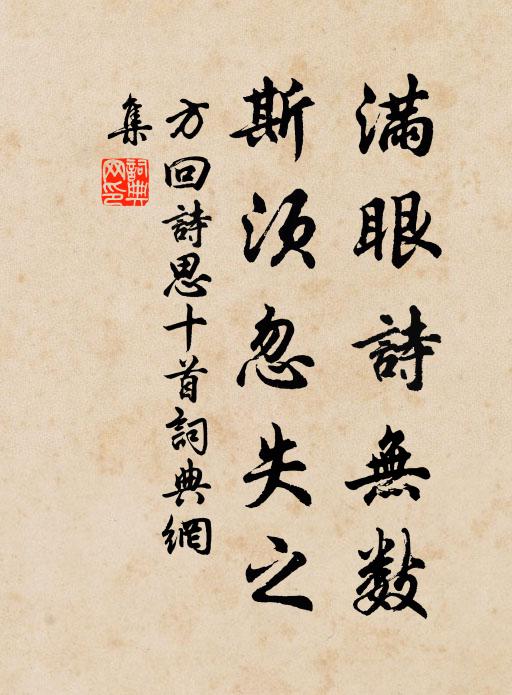 滿眼詩無數
斯須忽失之
方回詩思十首詞典網
集
詞典網印